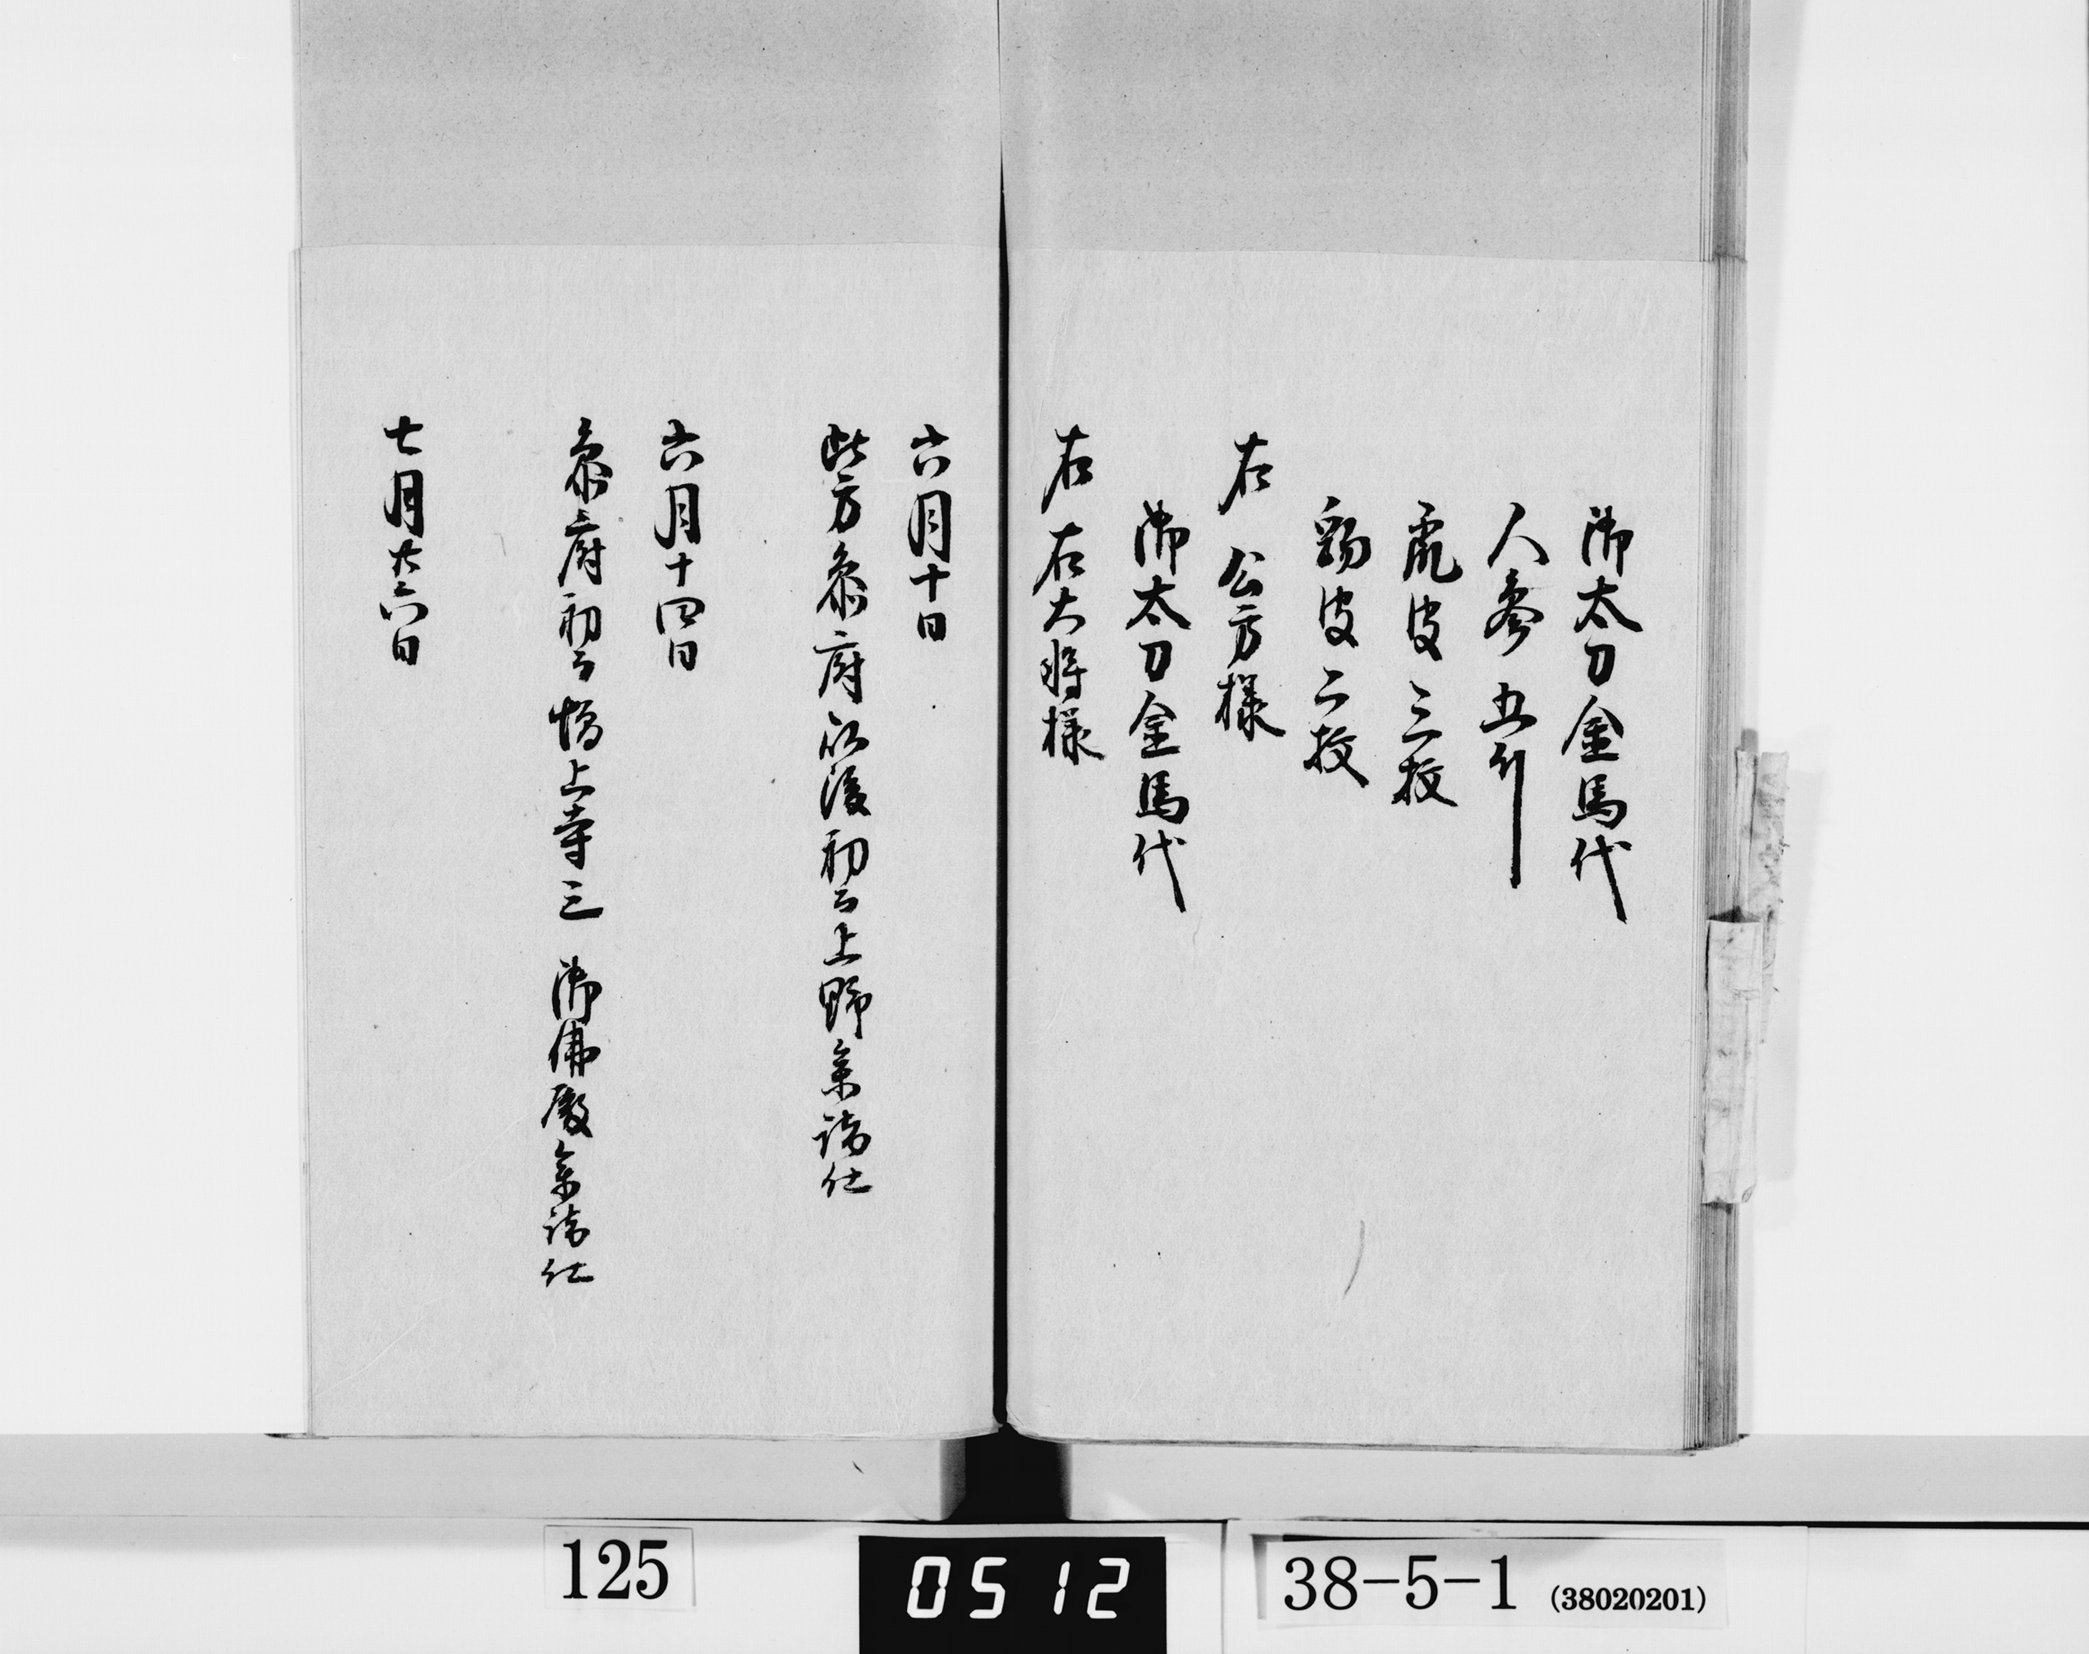 御太刀金馬代
人参 五斤
虎皮三枚
豹皮二枚
右 公方様
御太刀金馬代
右 右大将様
六月十日
此方参府以後初而上野参詣仕
六月十四日
参府初而増上寺三 御佛殿参詣仕
七月廿六日
125
0512
38-5-1 (38020201)